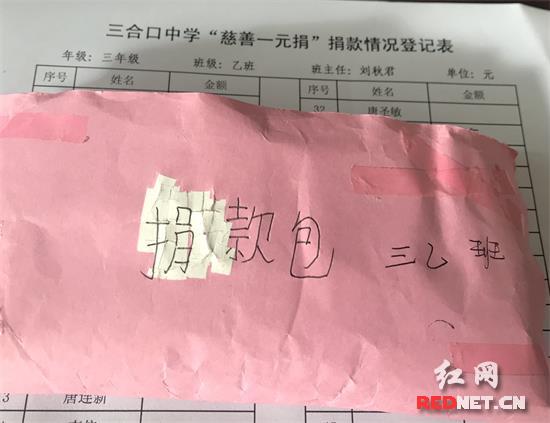 三合口中学“慈善一元捐”捐款情况登记表
年级：三年级 班级：乙班 班主任：刘秋君 单位：元
序号 姓名 金额 序号 姓名 金额
32 唐圣敏
捐款包 三乙班
唐连新
红网
REDNET.CN